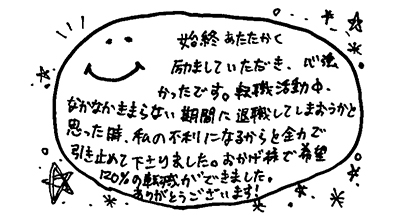 始終あたたかく
励ましていただき、心強
かったです。転職活動中、
なかなかきまらない期間に退職してしまおうかと
思った時、私の不利になるからと全力で
引き止めて下さりました。おかげ様で希望
120%の転職ができました。
ありがとうございます!